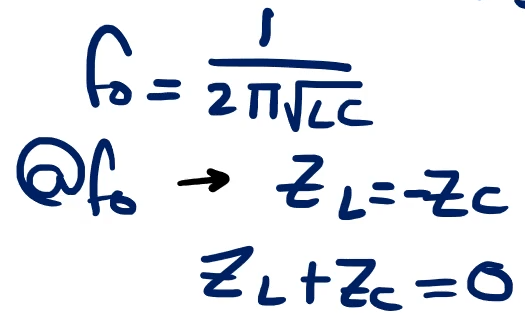 f₀ = 1 / 2π√LC
@f₀ → Z_L = -Z_C
Z_L + Z_C = 0